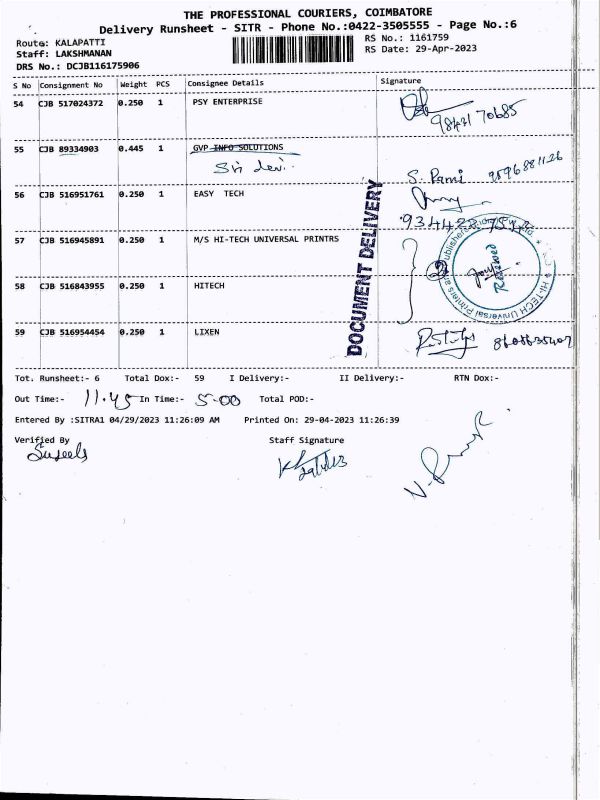 THE PROFESSIONAL COURIERS, COIMBATORE
Delivery Runsheet - SITR - Phone No.:0422-3505555 - Page No.:6
Route: KALAPATTI
RS No.: 1161759
Staff: LAKSHMANAN
RS Date: 29-Apr-2023
DRS No.: DCJB116175906
S No Consignment No Weight PCS Consignee Details Signature
54 CJB 517024372 0.250 1 PSY ENTERPRISE
55 CJB 89334903 0.445 1 GVP INFO SOLUTIONS
Sri devi.
S. Rami 9596881126
56 CJB 516951761 0.250 1 EASY TECH
57 CJB 516945891 0.250 1 M/S HI-TECH UNIVERSAL PRINTRS
58 CJB 516843955 0.250 1 HITECH
59 CJB 516954454 0.250 1 LIXEN
DOCUMENT DELIVERY
2
Received
HI-TECH Universal Printers & Publishers
Tot. Runsheet:- 6 Total Dox:- 59 I Delivery:- II Delivery:- RTN Dox:-
Out Time:- 11.45 In Time:- 5-00 Total POD:-
Entered By :SITRA1 04/29/2023 11:26:09 AM Printed On: 29-04-2023 11:26:39
Verified By Staff Signature